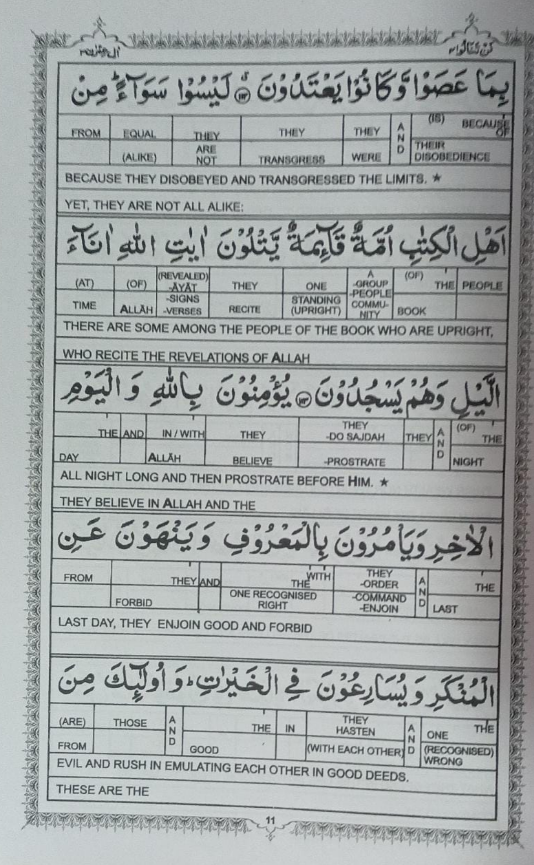 اٰل عمرٰن ۳
لن تنالوا ۴
بِمَا عَصَوْا وَّكَانُوْا يَعْتَدُوْنَ ﴿۱۱۲﴾ لَيْسُوْا سَوَآءً ؕ مِنْ
FROM EQUAL (ALIKE) THEY ARE NOT THEY TRANSGRESS THEY WERE AND (IS) BECAUSE OF THEIR DISOBEDIENCE
BECAUSE THEY DISOBEYED AND TRANSGRESSED THE LIMITS. ★
YET, THEY ARE NOT ALL ALIKE:
اَهْلِ الْكِتٰبِ اُمَّةٌ قَآئِمَةٌ يَّتْلُوْنَ اٰيٰتِ اللّٰهِ اٰنَآءَ
(AT) TIME (OF) ALLĀH (REVEALED) -ĀYĀT -SIGNS -VERSES THEY RECITE ONE STANDING (UPRIGHT) A -GROUP -PEOPLE COMMUNITY (OF) THE BOOK PEOPLE
THERE ARE SOME AMONG THE PEOPLE OF THE BOOK WHO ARE UPRIGHT,
WHO RECITE THE REVELATIONS OF ALLAH
الَّيْلِ وَهُمْ يَسْجُدُوْنَ ﴿۱۱۳﴾ يُؤْمِنُوْنَ بِاللّٰهِ وَ الْيَوْمِ
THE DAY AND IN / WITH ALLĀH THEY BELIEVE THEY -DO SAJDAH -PROSTRATE THEY AND (OF) THE NIGHT
ALL NIGHT LONG AND THEN PROSTRATE BEFORE HIM. ★
THEY BELIEVE IN ALLAH AND THE
الْاٰخِرِ وَيَاْمُرُوْنَ بِالْمَعْرُوْفِ وَيَنْهَوْنَ عَنِ
FROM THEY FORBID AND WITH THE ONE RECOGNISED RIGHT THEY -ORDER -COMMAND -ENJOIN AND THE LAST
LAST DAY, THEY ENJOIN GOOD AND FORBID
الْمُنْكَرِ وَيُسَارِعُوْنَ فِي الْخَيْرٰتِ ؕ وَ اُولٰٓئِكَ مِنَ
(ARE) FROM THOSE AND THE GOOD IN THEY HASTEN (WITH EACH OTHER) AND THE ONE (RECOGNISED) WRONG
EVIL AND RUSH IN EMULATING EACH OTHER IN GOOD DEEDS.
THESE ARE THE
11